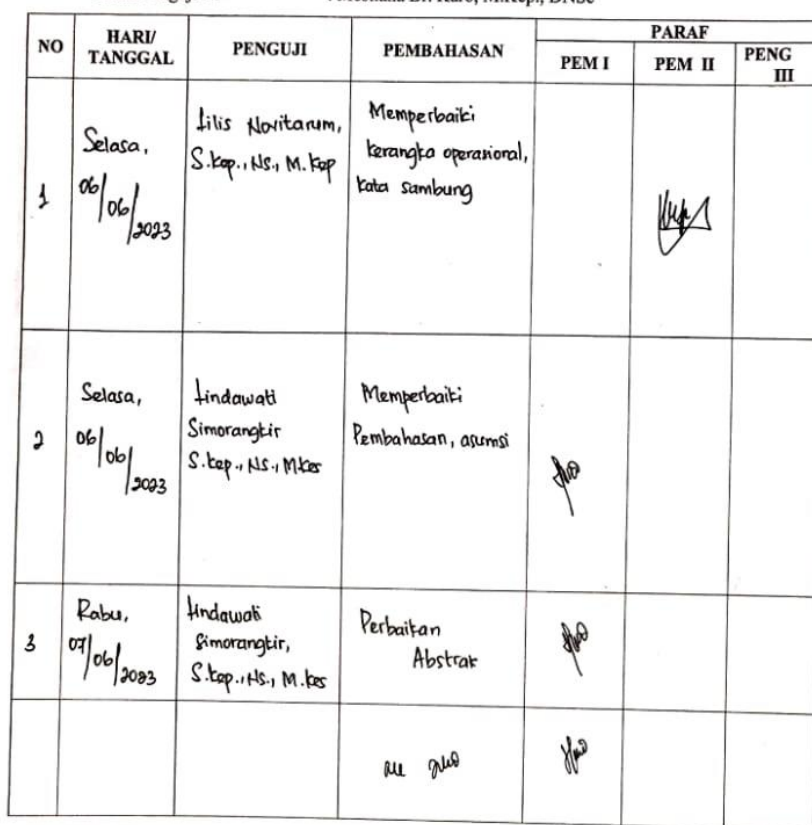 Br. Karo, M.Kep., DNSc
NO HARI/ TANGGAL PENGUJI PEMBAHASAN PARAF
PEM I PEM II PENG III
1 Selasa, 06/06/2023
Lilis Novitarum, S.kep., Ns., M.kep
Memperbaiki kerangka operasional, kata sambung
2 Selasa, 06/06/2023
Lindawati Simorangkir S.kep., Ns., M.kes
Memperbaiki Pembahasan, asumsi
3 Rabu, 07/06/2023
Lindawati Simorangkir, S.kep., Ns., M.kes
Perbaikan Abstrak